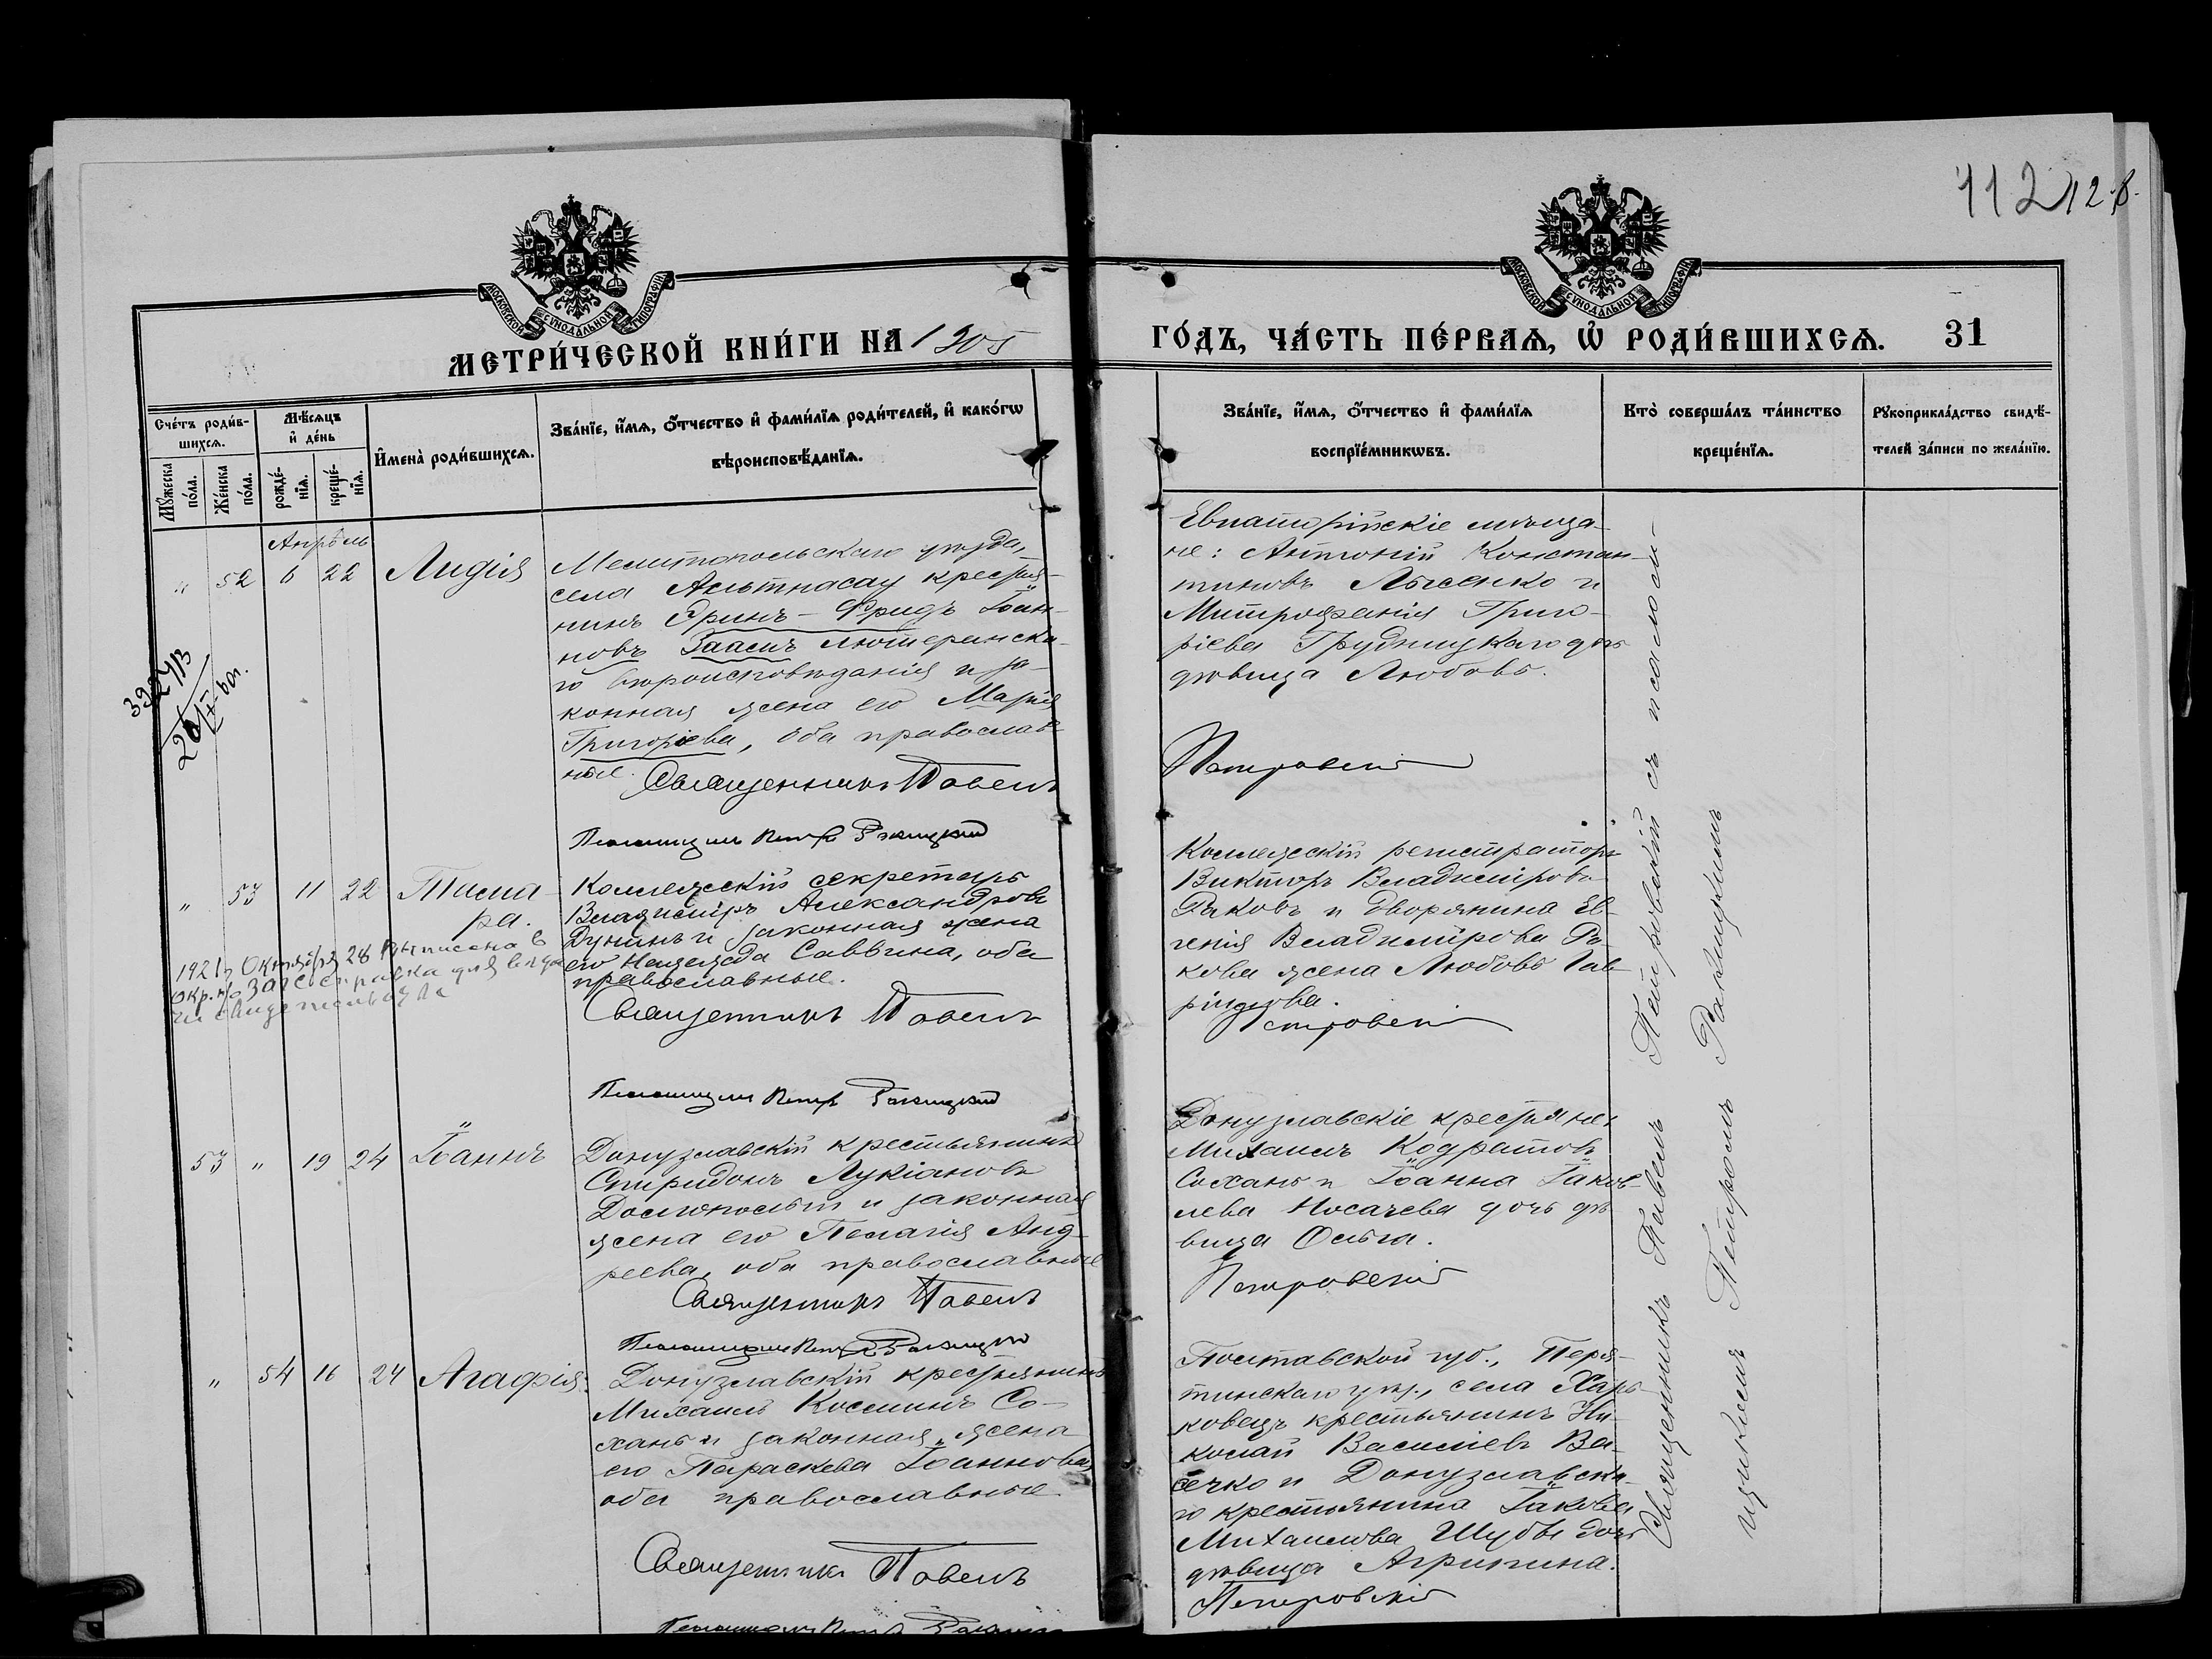 112 12 в.
МОСКОВСКОЙ СѴНОДАЛЬНОЙ ТИПОГРАФІИ
МОСКОВСКОЙ СѴНОДАЛЬНОЙ ТИПОГРАФІИ
МЕТРИ́ЧЕСКОЙ КНИ́ГИ НА 1905
ГО́ДЪ, ЧА́СТЬ ПЕ́РВАѦ, Ѡ҆ РОДИ́ВШИХСѦ. 31
Сче́тъ роди́в-
шихсѧ.
Мꙋ́жеска по́ла.
Же́нска по́ла.
Мѣ́сѧцъ
и҆ де́нь
рожде́-
нїѧ.
креще́-
нїѧ.
И҆мена̀ роди́вшихсѧ.
Зва́нїе, и҆́мѧ, ѻ҆́тчество и҆ фами́лїѧ роди́телей, и҆ како́гѡ
вѣроисповѣ́данїѧ.
Зва́нїе, и҆́мѧ, ѻ҆́тчество и҆ фами́лїѧ
воспрїе́мникѡвъ.
Кто̀ соверша́лъ та́инство
креще́нїѧ.
Рꙋкоприкла́дство свидѣ́-
телей за́писи по жела́нїю.
Апрѣль
" 52 6 22 Лидія
Мелитопольскаго уѣзда,
села Альтнасау крестья-
нинъ Эринъ-Фридъ Іоан-
новъ Заасъ лютеранска-
го вѣроисповѣданія и за-
конная жена его Марія
Григоріева, оба православ-
ные. Священникъ Павелъ
Псаломщикъ Петръ Ракицкій
Евпаторійскіе мѣща-
не: Антоній Констан-
тиновъ Лысенко и
Митрофанія Григо-
ріева Грудницкаго дѣ-
дѣвица Любовь.
Петровскій
" 53 11 22 Тама-
ра.
1921 г. Октября 28 выписана в
окр. п/о ЗАГС справка для выда
чи свидетельства
Коллежскій секретарь
Владиміръ Александровъ
Дунинъ и законная жена
его Надежда Саввина, оба
православные.
Священникъ Павелъ
Псаломщикъ Петръ Ракицкій
Коллежскій регистраторъ
Викторъ Владиміровъ
Раковъ и дворянина Ев-
генія Владимірова Ра-
кова жена Любовь Гав-
ріилова.
Петровскій
53 " 19 24 Іоаннъ
Донузлавскій крестьянинъ
Спиридонъ Лукіановъ
Долгополый и законная
жена его Пелагія Анд-
реева, оба православные
Священникъ Павелъ
Псаломщикъ Петръ Ракицкій
Донузлавскіе крестьяне:
Михаилъ Кодратовъ
Сохань и Іоанна Іаков-
лева Носачева дочь дѣ-
вица Ольга.
Петровскій
" 54 16 24 Агафія.
Донузлавскій крестьянинъ
Михаилъ Космин
ъ Со-
хань и законная жена
его Параскева Іоаннова,
оба православные.
Священникъ Павелъ
Псаломщикъ Петръ Ракицкій
Полтавской губ., Перя-
тинскаго уѣз., села Харь-
ковецъ крестьянинъ Ни-
колай Василіевъ Ва-
сечко и Донузлавска-
го крестьянина Іакова
Михаилова Шубы дочь
дѣвица Агрипина.
Петровскій
Священникъ Павелъ Петровскій съ псалом-
щикомъ Петромъ Ракицкимъ